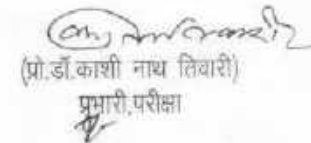 (प्रो.डॉ.काशी नाथ तिवारी)
प्रभारी,परीक्षा